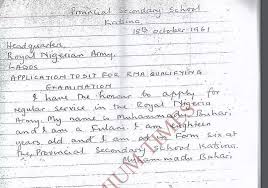 Provincial Secondary School
Katsina.
18th October 1961
Headquarter,
Royal Nigerian Army,
LAGOS
APPLICATION TO SIT FOR RNA QUALIFYING
EXAMINATION
I have the honour to apply for
regular service in the Royal Nigeria
Army. My name is Muhammadu Buhari
and I am a Fulani. I am eighteen
years old and I am at the Form six at
the, Provincial Secondary School Katsina.
Muhammadu Buhari.
PREMIUM TIMES